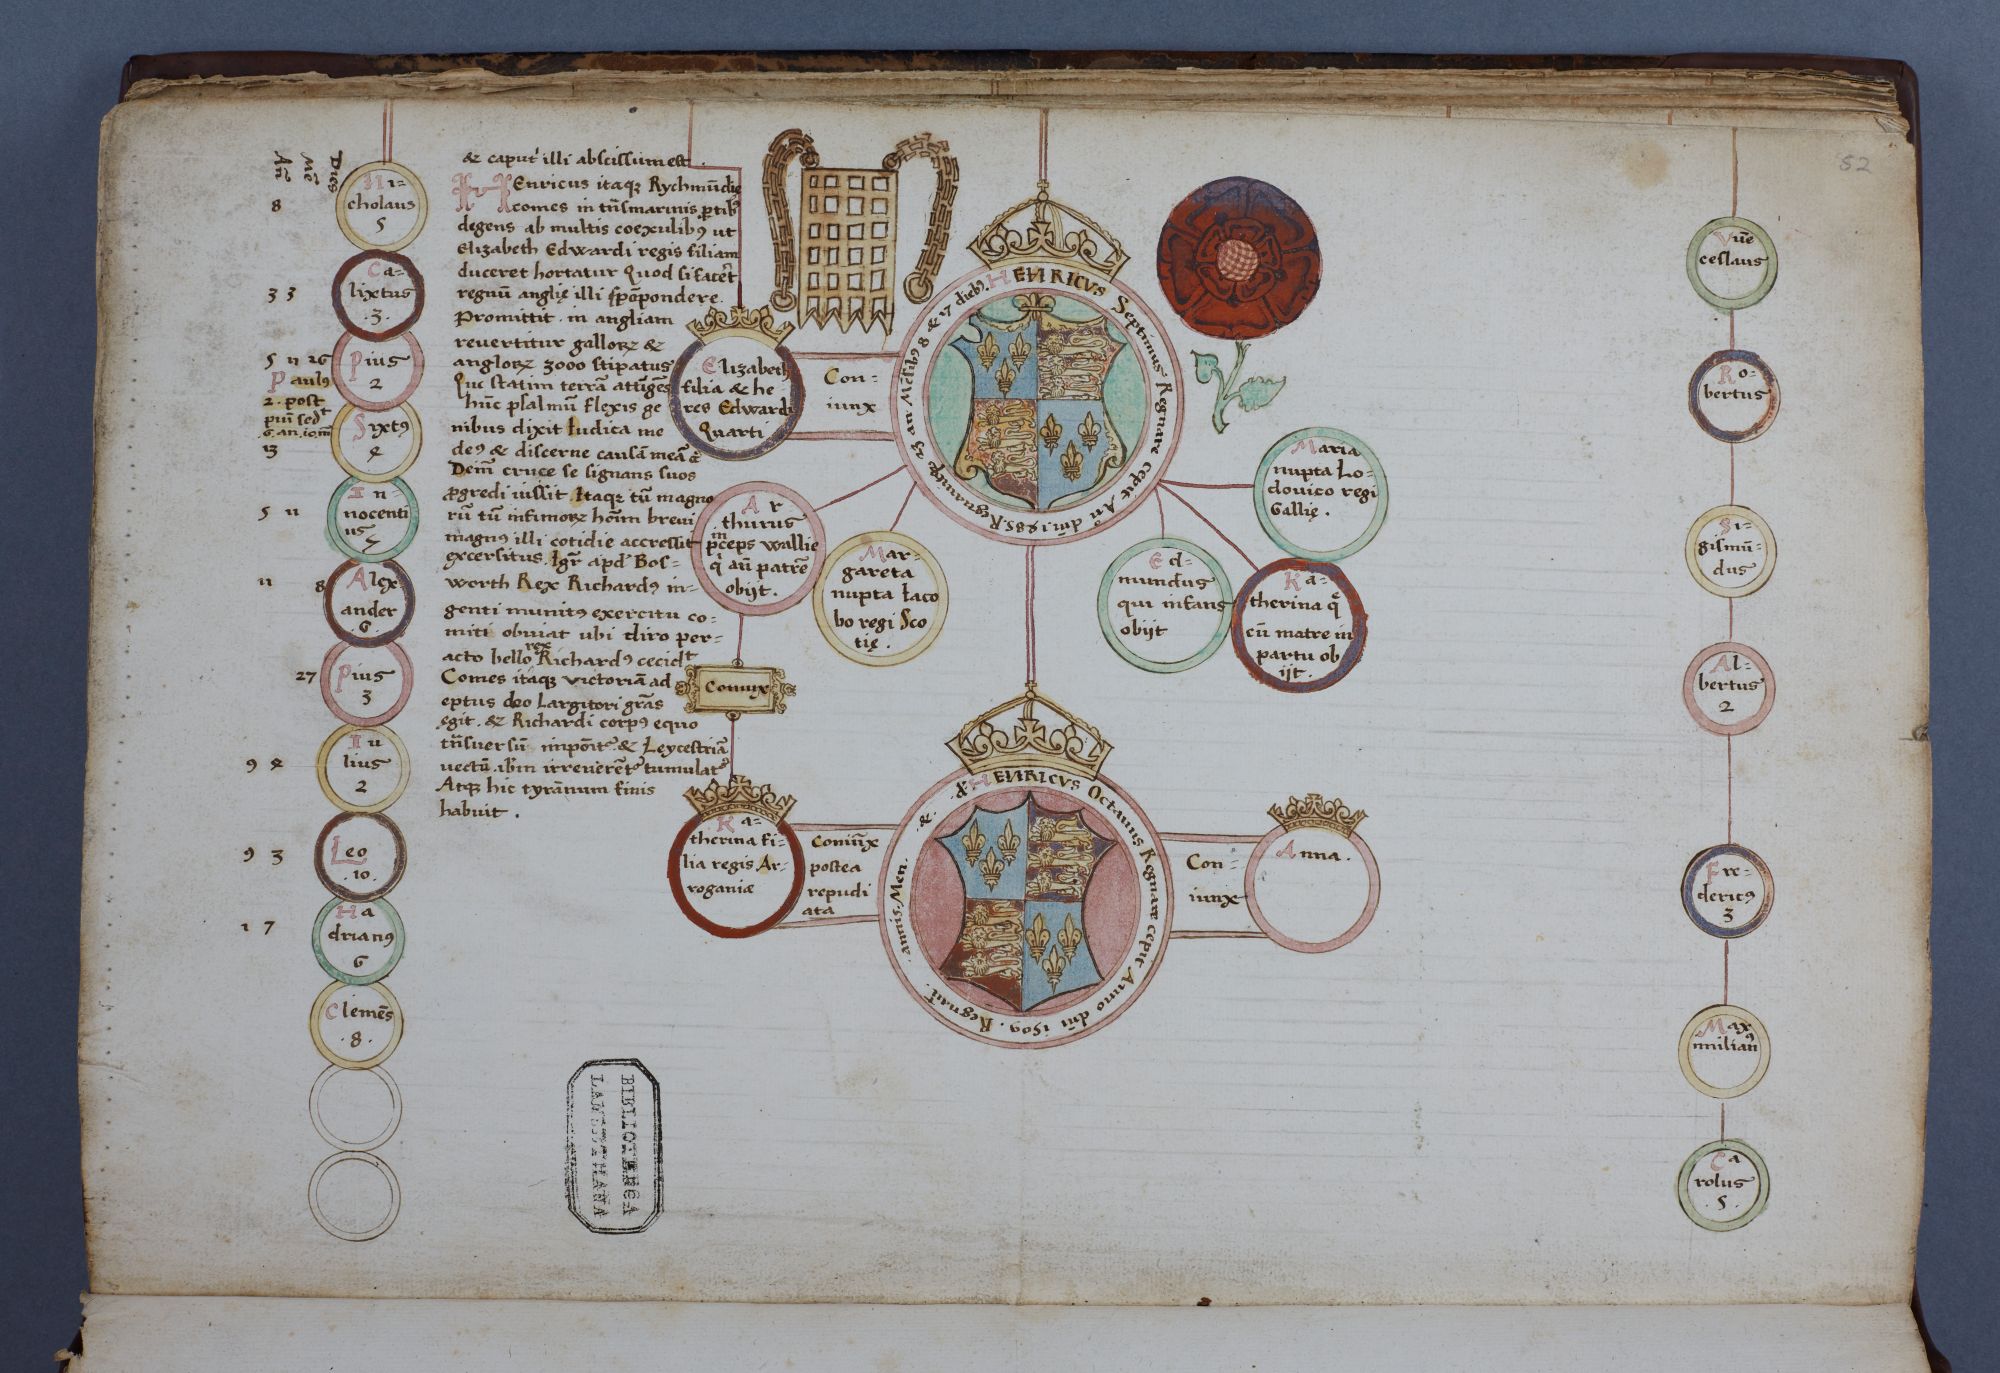 52
Dies
Mē
Añ
Ni=
cholaus
5
8
Ca=
lixtus
.3.
3 3
Pius
2
5 11 26
Paulꝰ
2. post
piū sedᵗ
6 an. 10 m̄
Sixtꝰ
4
13
In=
nocenti
us
5 11
Alex
ander
6
11 8
Pius
3
27
Iu
lius
2
9 4
Leo
.10.
9 3
Ha
drianꝰ
6
1 7
Clemēs
.8.
& caput illi abscissum est.
HEnricus itaqꝫ Rychmūdie
comes in trn̄smarinis ptibꝰ
degens ab multis coexulibꝰ ut
Elizabeth Edwardi regis filiam
duceret hortatur Quod si facerᵗ
regnū anglię illi spōpondere.
Promittit. in angliam
revertitur gallorꝫ &
anglorꝫ 3000 stipatus
Qui statim terrā attīgēs
hūc psalmū flexis ge
nibus dixit Iudica me
deꝰ & discerne causā meā &
Deīn cruce se signans suos
ꝓgredi iussit Itaqꝫ tū magno
rū tū infimorꝫ hoīm brevi
magnꝰ illi cotidie accressit
excersitus. Igr̄ apd̄ Bos=
worth Rex Richardꝰ in=
genti munitꝰ exercitu co=
miti obuiat ubi diro per=
acto bello rex Richardꝰ cecidᵗ
Comes itaqꝫ victoriā ad
eptus deo Largitori grās
egit. & Richardi corpꝰ equo
trn̄sversū impōitᵉ & Leycestriā
vectū. ibm̄ irreverētᵉ tumulatᵉ
Atqꝫ hic tyrānum finis
habuit.
HENRICVS Septimus Regnare cepit An̄ dn̄i 1485. Regnavitqꝫ 23 an̄ Mēsibꝰ 8 & 17 diebꝰ.
Elizabeth
filia & he
res Edwardi
Quarti
Con=
iunx
Ar
thurus
p̄ceps wallie
q̄ an̄ patrē
obijt.
Mar=
gareta
nupta Iaco
bo regi Sco
tię.
Ed=
mundus
qui infans
obijt
Maria
nupta Lo=
dovico regi
Gallię.
Ka=
therina q̄
cū matre in
partu ob
ijt.
Coniux
HENRICVS Octavus Regnare cepit Anno dn̄i 1509. Regnavᵗ. annis. Men. &. &.
Ka=
therina fi=
lia regis Ar=
roganiæ
Coniūx
postea
repudi
ata
Con=
iunx
Anna.
Vūe
ceslaus
Ro=
bertus
Si=
gismū=
dus
Al=
bertus
2
Fre=
dericꝰ
3
Max
imilianꝰ
Ca
rolus
.5.
BIBLIOTHECA
LAMBETHANA